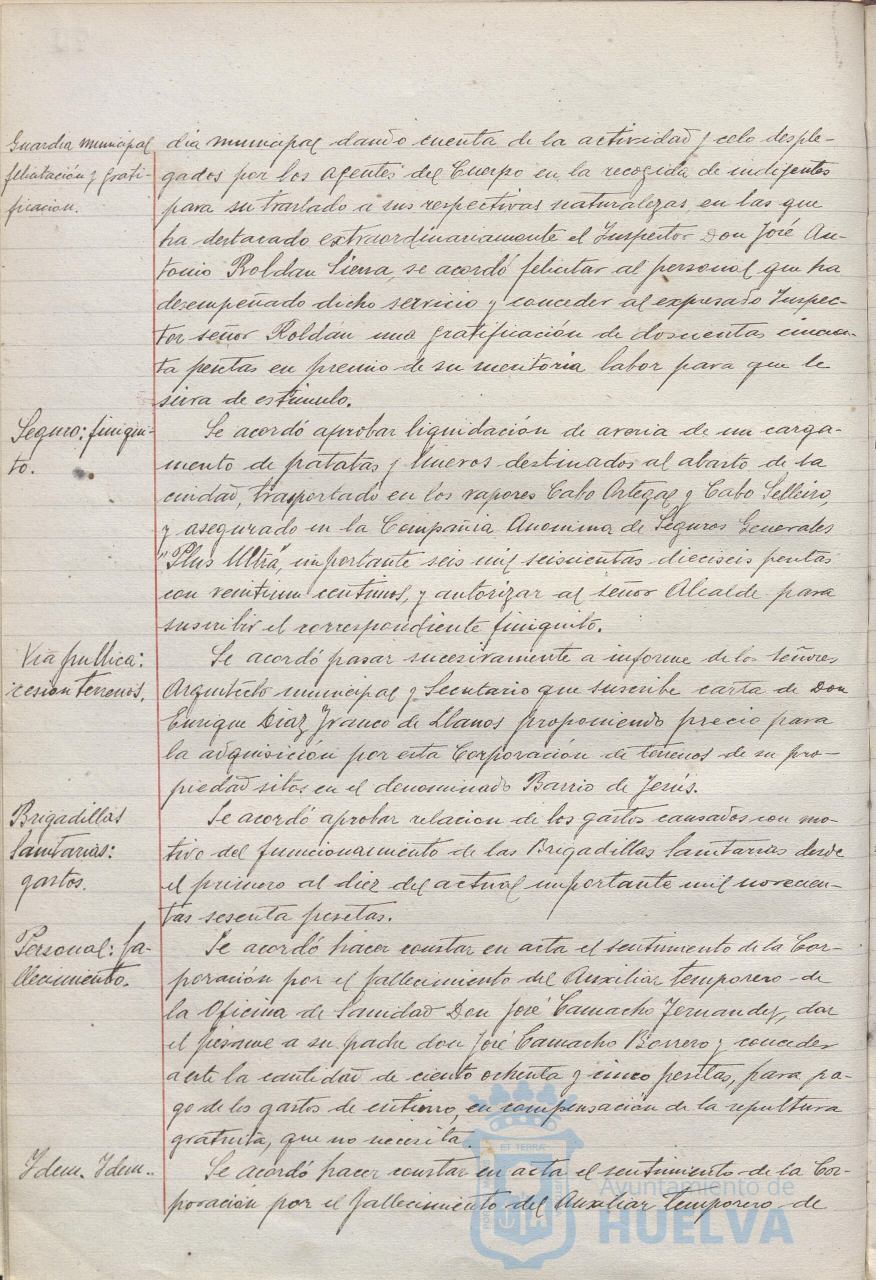 Guardia municipal
felicitación y grati-
ficacion.
dia municipal dando cuenta de la actividad y celo desple-
gados por los agentes del Cuerpo en la recogida de indigentes
para su traslado a sus respectivas naturalezas, en las que
ha destacado extraordinariamente el Inspector Don José An-
tonio Roldan Sierra, se acordó felicitar al personal que ha
desempeñado dicho servicio y conceder al expresado Inspec-
tor señor Roldán una gratificación de doscuentas cincuen-
ta pesetas en premio de su meritoria labor para que le
sirva de estimulo.
Seguro: finiqui-
to.
Se acordó aprobar liquidación de averia de un carga-
mento de patatas y huevos destinados al abasto de la
ciudad, trasportado en los vapores Cabo Ortegal y Cabo Silleiro,
y asegurado en la Compañia Anonima de Seguros Generales
"Plus Ultra", importante seis mil seiscientas dieciseis pesetas
con veintiun centimos, y autorizar al señor Alcalde para
suscribir el correspondiente finiquito.
Via publica:
cesion terrenos.
Se acordó pasar sucesivamente a informe de los señores
Arquitecto municipal y Secretario que suscribe carta de Don
Enrique Diaz Franco de Llanos proponiendo precio para
la adquisición por esta Corporación de terrenos de su pro-
piedad sitos en el denominado Barrio de Jesús.
Brigadillas
Sanitarias:
gastos.
Se acordó aprobar relacion de los gastos causados con mo-
tivo del funcionamiento de las Brigadillas Sanitarias desde
el primero al diez del actual importante mil novecien-
tas sesenta pesetas.
Personal: fa-
llecimiento.
Se acordó hacer constar en acta el sentimiento de la Cor-
poración por el fallecimiento del Auxiliar temporero de
la Oficina de Sanidad Don José Camacho Fernandez, dar
el pésame a su padre don José Camacho Borrero y conceder
a este la cantidad de ciento ochenta y cinco pesetas, para pa-
go de los gastos de entierro, en compensación de la sepultura
gratuita, que no necesita.
Idem. Idem..
Se acordó hacer constar en acta el sentimiento de la Cor-
poración por el fallecimiento del Auxiliar temporero de
Ayuntamiento de
HUELVA